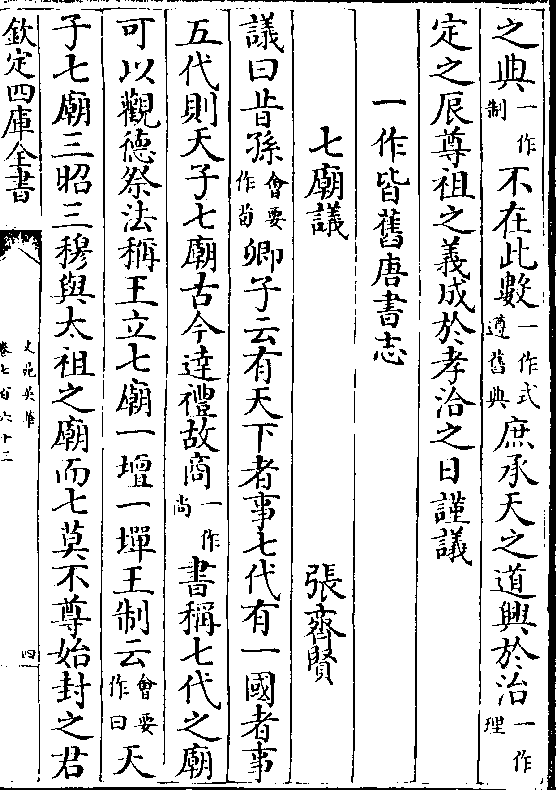 之典一作制不在此數一作式遵舊典庶承天之道興於治一作理
定之辰尊祖之義成於孝治之日謹議
一作皆舊唐書志
七廟議 張齊賢
議曰昔孫會要作荀卿子云有天下者事七代有一國者事
五代則天子七廟古今達禮故商一作尚書稱七代之廟
可以觀德祭法稱王立七廟一壇一墠王制云會要作曰天
子七廟三昭三穆與太祖之廟而七莫不尊始封之君
欽定四庫全書
文苑英華
卷七百六十二
四